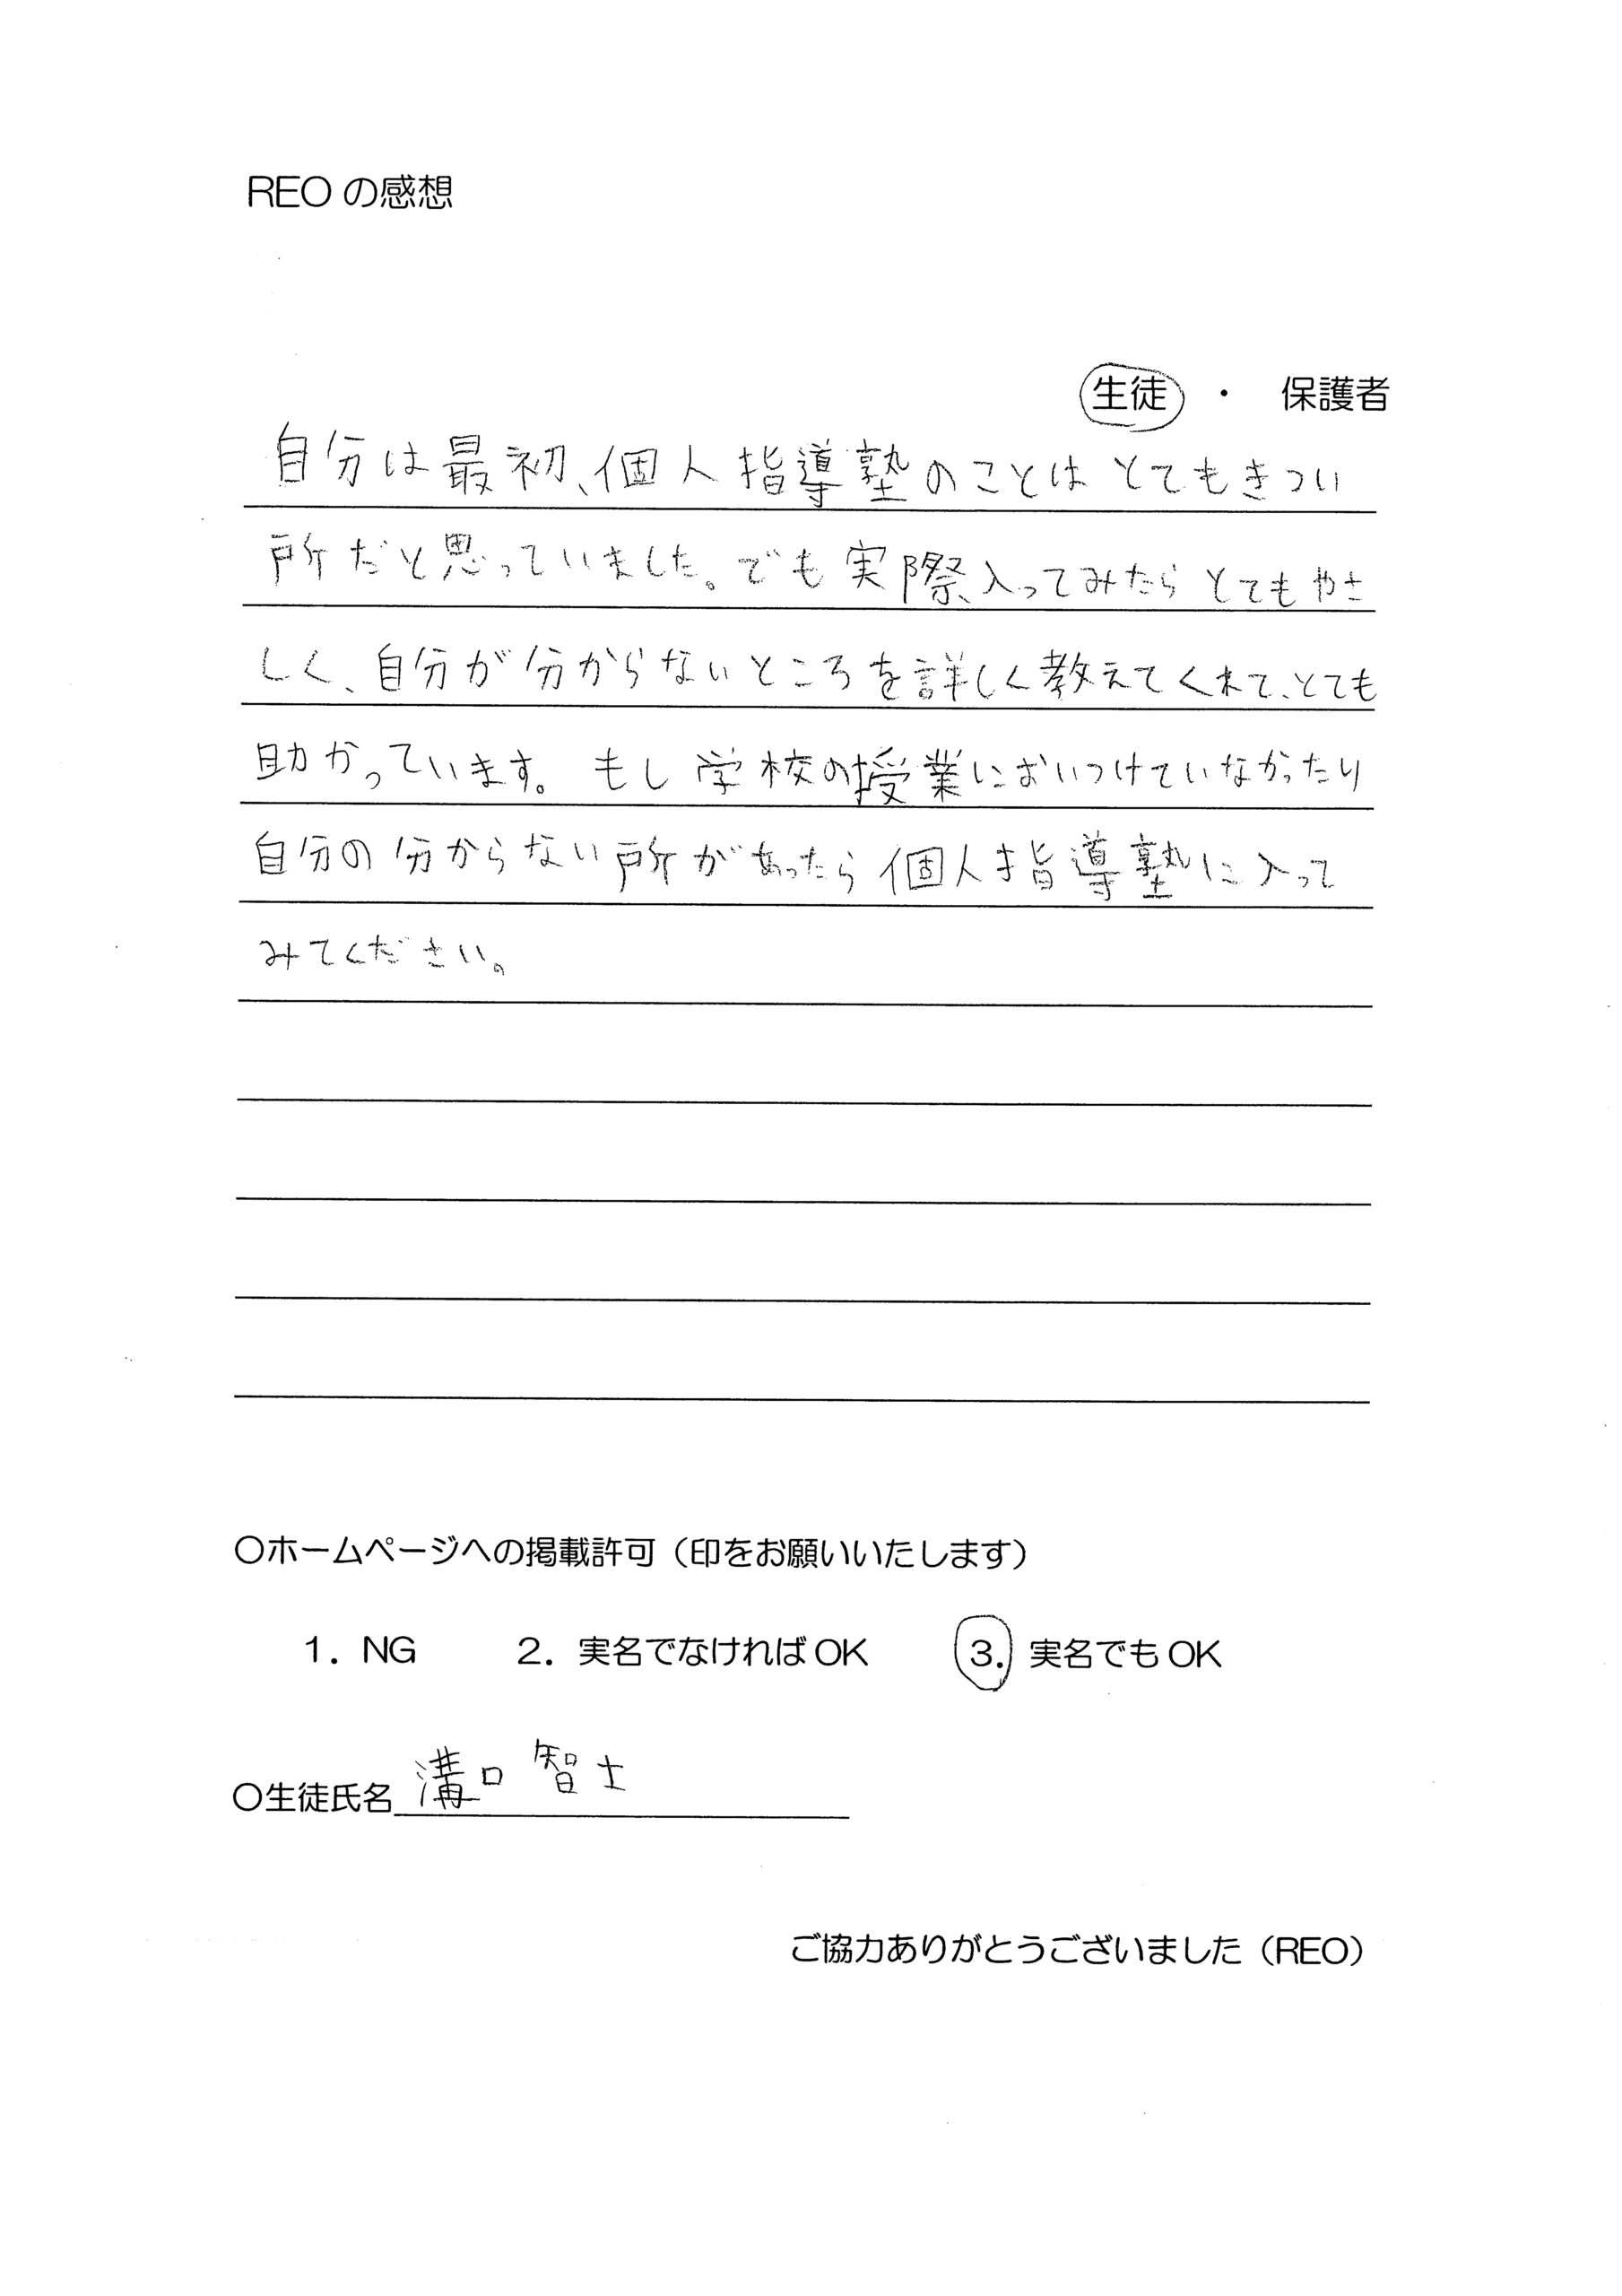 REOの感想
生徒 ・ 保護者
自分は最初、個人指導塾のことはとてもきつい
所だと思っていました。でも実際入ってみたらとてもやさ
しく、自分が分からないところを詳しく教えてくれて、とても
助かっています。もし学校の授業においつけていなかったり
自分の分からない所があったら個人指導塾に入って
みてください。
〇ホームページへの掲載許可（印をお願いいたします）
1. NG 2. 実名でなければOK 3. 実名でもOK
〇生徒氏名 溝口 智士
ご協力ありがとうございました（REO）